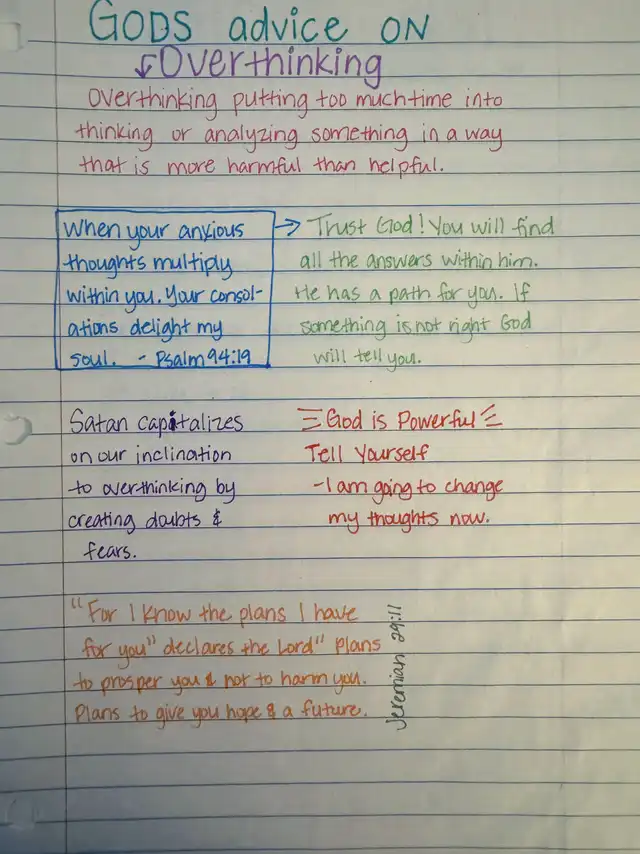 GODS advice ON
Overthinking
Overthinking putting too much time into
thinking or analyzing something in a way
that is more harmful than helpful.
When your anxious
thoughts multiply
within you. Your consol-
ations delight my
soul. - Psalm 94:19
→ Trust God! You will find
all the answers within him.
He has a path for you. If
something is not right God
will tell you.
Satan capitalizes
on our inclination
to overthinking by
creating doubts &
fears.
God is Powerful
Tell Yourself
-I am going to change
my thoughts now.
"For I know the plans I have
for you" declares the Lord" Plans
to prosper you & not to harm you.
Plans to give you hope & a future.
Jeremian 29:11